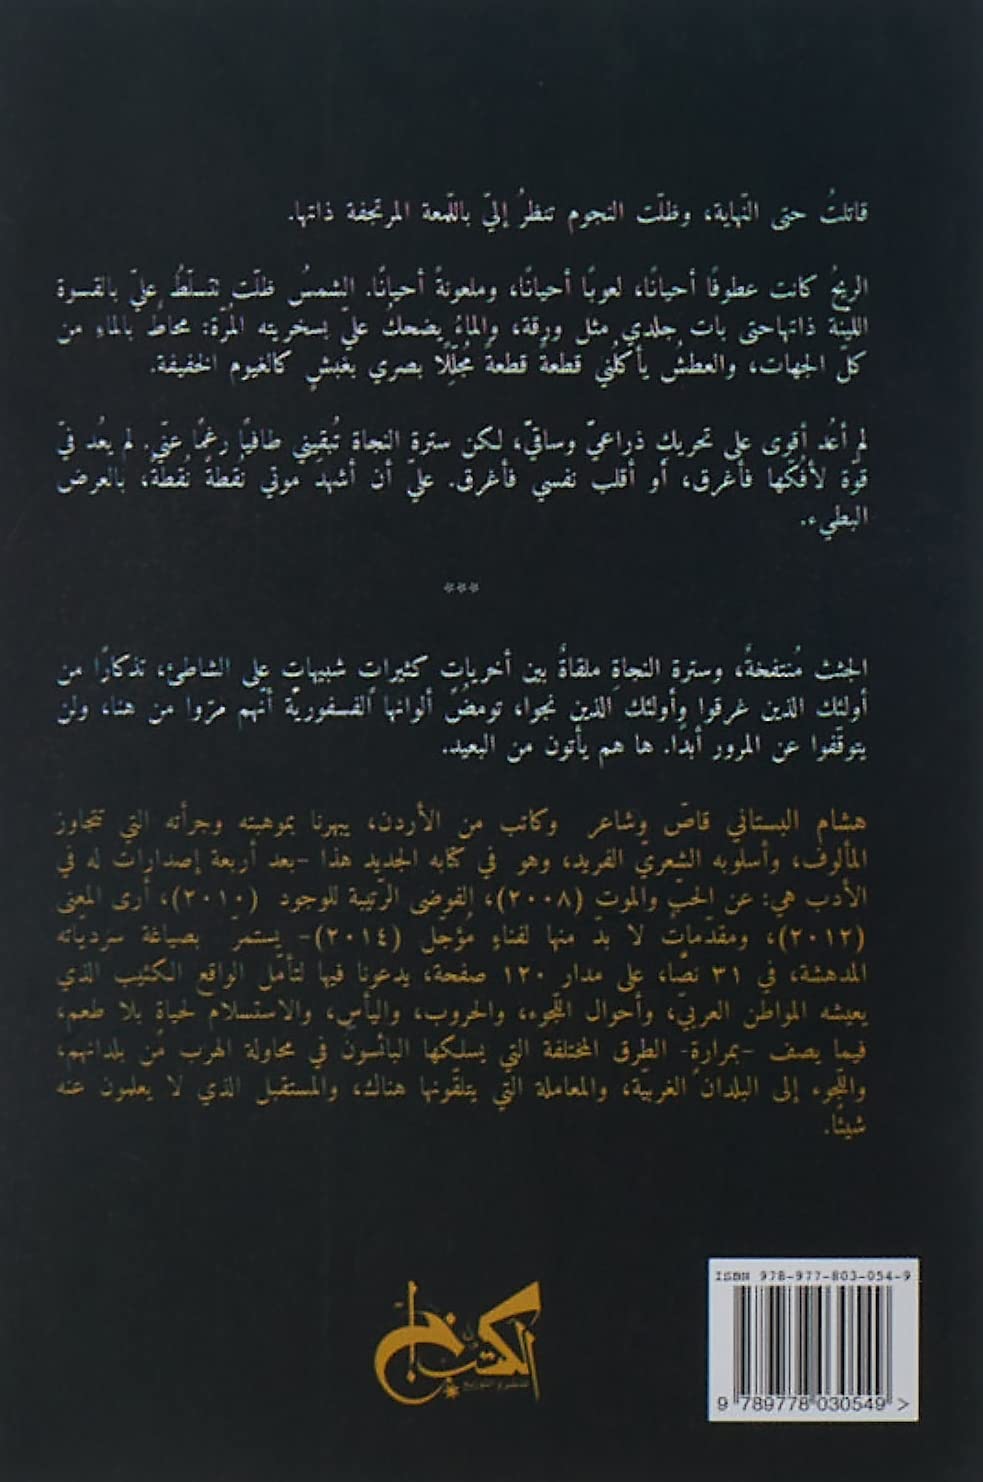 قاتلتُ حتى النّهاية، وظلّت النجوم تنظرُ إليّ باللّمعة المرتجفة ذاتها.
الريحُ كانت عطوفًا أحيانًا، لعوبًا أحيانًا، وملعونةً أحيانًا. الشمسُ ظلّت تتسلّطُ عليّ بالقسوة
اللينة ذاتهاحتى بات جلدي مثل ورقة، والماءُ يضحكُ عليّ بسخريته المُرّة: محاطٌ بالماءِ من
كل الجهات، والعطشُ يأكلُني قطعةً قطعةً مُجلّلًا بصري بغبشٍ كالغيوم الخفيفة.
لم أعُد أقوى على تحريك ذراعيّ وساقيّ، لكن سترة النجاة تُبقيني طافيًا رغمًا عنّي. لم يعُد فيّ
قوّة لأفُكّها فأغرق، أو أقلب نفسي فأغرق. عليّ أن أشهدَ موتي نُقطةً نُقطةً، بالعرض
البطيء.
***
الجثث مُنتفخةٌ، وسترة النجاةِ ملقاةٌ بين أخرياتٍ كثيراتٍ شبيهاتٍ على الشاطئ، تذكارًا من
أولئك الذين غرقوا وأولئك الذين نجوا، تومضُ ألوانها الفسفوريّة أنّهم مرّوا من هنا، ولن
يتوقّفوا عن المرور أبدًا. ها هم يأتون من البعيد.
هشام البستاني قاصّ وشاعر وكاتب من الأردن، يبهرنا بموهبته وجرأته التي تتجاوز
المألوف، وأسلوبه الشعريّ الفريد، وهو في كتابه الجديد هذا -بعد أربعة إصدارات له في
الأدب هي: عن الحبّ والموت (٢٠٠٨)، الفوضى الرّتيبة للوجود (٢٠١٠)، أرى المعنى
(٢٠١٢)، ومقدّماتٌ لا بدّ منها لفناءٍ مُؤجل (٢٠١٤)- يستمرّ بصياغة سردياته
المدهشة، في ٣١ نصًّا، على مدار ١٢٠ صفحة، يدعونا فيها لتأمّل الواقع الكئيب الذي
يعيشه المواطن العربيّ، وأحوال اللّجوء، والحروب، واليأس، والاستسلام لحياةٍ بلا طعم،
فيما يصف -بمرارةٍ- الطرق المختلفة التي يسلكها البائسون في محاولة الهرب من بلدانهم،
واللّجوء إلى البلدان الغربيّة، والمعاملة التّي يتلقّونها هناك، والمستقبل الذي لا يعلمون عنه
شيئًا.
الكتب خان
للنشر و التوزيع
ISBN 978-977-803-054-9
9 789778 030549 >